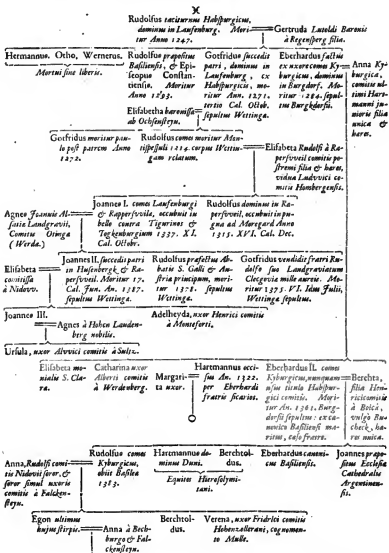 X
Rudolfus taciturnus Habspurgicus,
dominus in Laufenburg. Mori-
tur Anno 1247.
Gertruda Lutoldi Baronis
à Regensperg filia.
Hermannus. Otho, Wernerus.
Mortui sine liberis.
Rudolfus præpositus
Basiliensis, & Epi-
scopus Constan-
tiensis. Moritur
Anno 1293.
Gotfridus succedit
patri, dominus in
Laufenburg, ex
Habspurgicis, mo-
ritur Ann. 1271.
tertio Cal. Octob.
sepultus Wettinga.
Eberhardus factus
ex uxore comes Ky-
burgicus, dominus
in Burgdorf. Mo-
ritur 1284. sepul-
tus Burgkdorfii.
Anna Ky-
burgica,
comitis ul-
timi Hart-
manni ju-
nioris filia
unica &
hæres.
Elisabetha baronissa
ab Ochsensteyn.
Gotfridus moritur pau-
lo post patrem Anno
1272.
Rudolfus comes moritur Mon-
tispessuli 1314. corpus Wettin-
gam relatum.
Elisabeta Rudolfi à Ra-
persveil comitis po-
stremi filia & hæres,
vidua Ludvvici co-
mitis Hombergensis.
Agnes Joannis Al-
satiæ Landgravii,
Comitis Ottinga
(Werda.)
Joannes I. comes Laufenburgi
& Rappersvila, occubuit in
bello contra Tigurinos &
Togkenburgium 1337. XI.
Cal. Octobr.
Rudolfus dominus in Ra-
persveil, occubuit in pu-
gna ad Moregard Anno
1315. XVI. Cal. Dec.
Elisabeta
comitissa
à Nidovv.
Joannes II. succedit patri
in Husenbergk & Ra-
persveil. Moritur 17.
Cal. Jun. An. 1387.
sepultus Wettinga.
Rudolfus præfectus Ab-
batis S. Galli & Au-
striæ principum, mori-
tur 1378. sepultus
Wettinga.
Gotfridus vendidit fratri Ru-
dolfo suo Landgraviatum
Clecgoviæ mille aureis. Mo-
ritur 1375. VI. Idus Julii,
Wettinga sepultus.
Joannes III.
Agnes à Hohen Lauden-
berg nobilis.
Adelheyda, uxor Henrici comitis
à Monteforti.
Ursula, uxor Alvvici comitis à Sultz.
Elisabeta mo-
nialis S. Cla-
ra.
Catharina uxor
Alberti comitis
à Werdenberg.
Margari-
ta uxor.
Hartmannus occi-
sus An. 1322.
per Eberhardi
fratris sicarios.
Eberhardus II. comes
Kyburgicus, nunquam
usus titulo Habspur-
gici comitis. Mori-
tur An. 1361. Burg-
dorfii sepultus: ex ca-
nonico Basiliensi ma-
ritus, cæso fratre.
Berchta,
filia Hen-
rici comitis
à Boicâ,
vulgo Bu-
check, hæ-
res unica.
Anna, Rudolfi comi-
tis Nidovii soror, &
soror simul uxoris
comitis à Falcken-
steyn.
Rudolfus comes
Kyburgicus,
obiit Basileæ
1383.
Hartmannus do-
minus Duni.
Berchtol-
dus.
Equites Hierosolymi-
tani.
Eberhardus canoni-
cus Basiliensis.
Joannes præpo-
situs Ecclesiæ
Cathedralis
Argentinen-
sis.
Egon ultimus
hujus stirpis.
Anna à Bech-
burgo & Fal-
ckensteyn.
Berchtol-
dus.
Verena, uxor Fridrici comitis
Hohenzollerani, cognomen-
to Mulle.